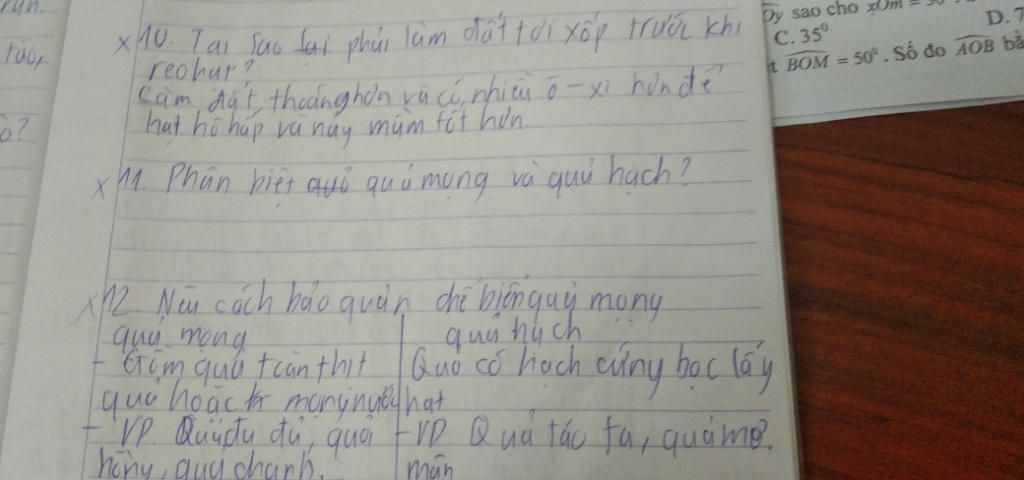 run.
táo,
ò?
x 10. Tại sao lại phải làm đất tơi xốp trước khi
reo hạt?
Làm đất thoáng hơn và có nhiều ô-xi hơn để
hạt hô hấp và nảy mầm tốt hơn.
x 11. Phân biệt quả mọng và quả hạch?
x 12. Nêu cách bảo quản chế biến quả mọng
quả mọng
quả hạch
- Gồm quả toàn thịt
Quả có hạch cứng bọc lấy
quả hoặc mọng nước
hạt
- VD. Quả đu đủ, quả
- VD Quả táo ta, quả mơ.
hồng, quả chanh.
mận
Oy sao cho xOm =
C. 35°
D. 7
t BOM = 50°. Số đo AOB bằ